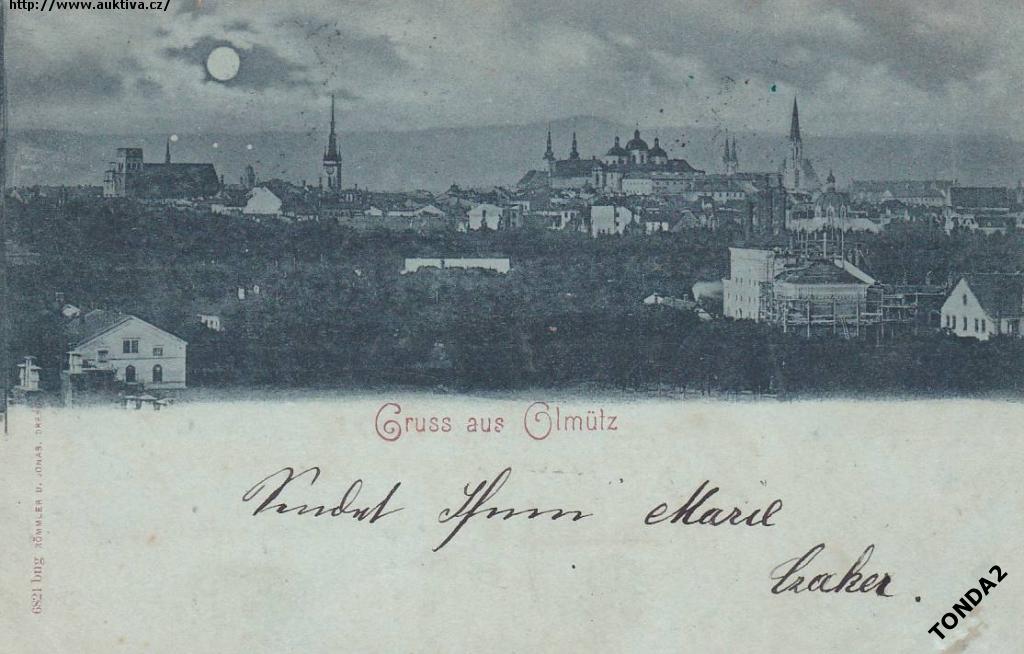 http://www.auktiva.cz/
Gruss aus Olmütz
Sendet Ihnen Marie
Czaker.
6821 bng RÖMMLER U. JONAS, DRES
TONDA2